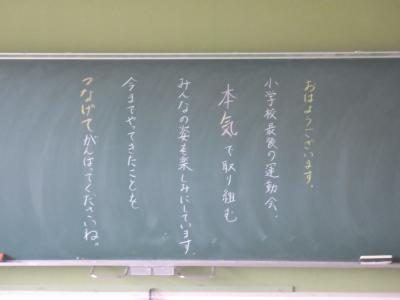 おはようございます。
小学校最後の運動会。
本気で取り組む
みんなの姿を楽しみにしています。
今までやってきたことを
つなげてがんばってくださいね。